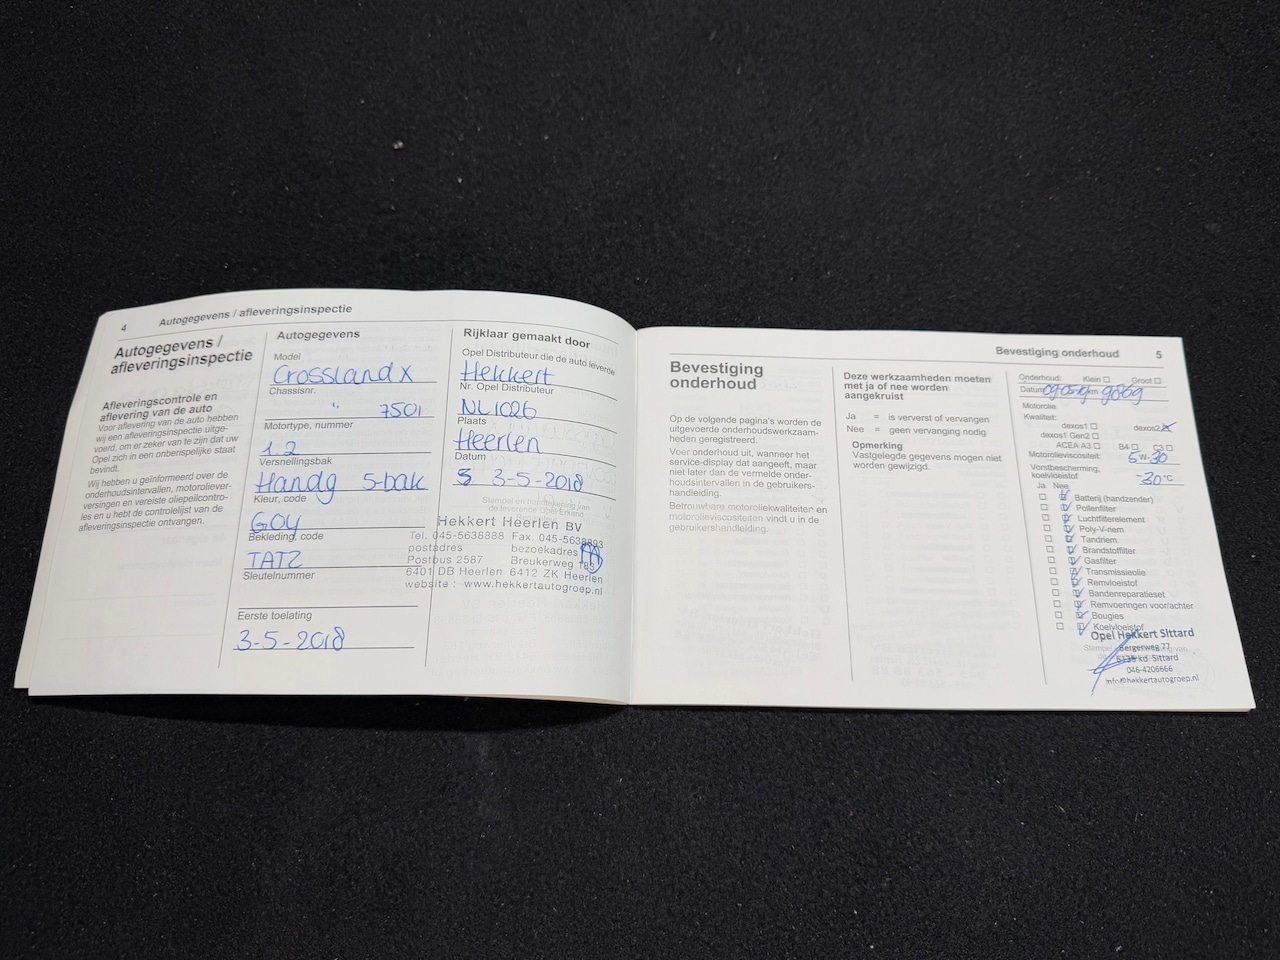 4
Autogegevens / afleveringsinspectie
Autogegevens /
afleveringsinspectie
Afleveringscontrole en
aflevering van de auto
Voor aflevering van de auto hebben
wij een afleveringsinspectie uitge-
voerd, om er zeker van te zijn dat uw
Opel zich in een onberispelijke staat
bevindt.
Wij hebben u geïnformeerd over de
onderhoudsintervallen, motoroliever-
versingen en vereiste oliepeilcontro-
les en u hebt de controlelijst van de
afleveringsinspectie ontvangen.
Autogegevens
Model
Crossland X
Chassisnr.
" 7501
Motortype, nummer
1.2
Versnellingsbak
Handg 5-bak
Kleur, code
GOY
Bekleding, code
TATZ
Sleutelnummer
Eerste toelating
3-5-2018
Rijklaar gemaakt door
Opel Distributeur die de auto leverde
Hekkert
Nr. Opel Distributeur
NL1026
Plaats
Heerlen
Datum
3-5-2018
Stempel en handtekening van
de leverende Opel Erkend
Hekkert Heerlen BV
Tel. 045-5638888 Fax. 045-5638893
postadres bezoekadres
Postbus 2587 Breukerweg 183
6401 DB Heerlen 6412 ZK Heerlen
website : www.hekkertautogroep.nl
Bevestiging onderhoud 5
Bevestiging
onderhoud
Op de volgende pagina's worden de
uitgevoerde onderhoudswerkzaam-
heden geregistreerd.
Voer onderhoud uit, wanneer het
service-display dat aangeeft, maar
niet later dan de vermelde onder-
houdsintervallen in de gebruikers-
handleiding.
Betrouwbare motoroliekwaliteiten en
motorolieviscositeiten vindt u in de
gebruikershandleiding.
Deze werkzaamheden moeten
met ja of nee worden
aangekruist
Ja = is ververst of vervangen
Nee = geen vervanging nodig
Opmerking
Vastgelegde gegevens mogen niet
worden gewijzigd.
Onderhoud: Klein Groot
Datum km 9869
Motorolie
Kwaliteit:
dexos1 dexos2 X
dexos1 Gen2
ACEA A3 B4 C3
Motorolieviscositeit: 5 W-30
Vorstbescherming,
koelvloeistof -30 °C
Ja Nee
Batterij (handzender)
Pollenfilter
Luchtfilterelement
Poly-V-riem
Tandriem
Brandstoffilter
Gasfilter
Transmissieolie
Remvloeistof
Bandenreparatieset
Remvoeringen voor/achter
Bougies
Koelvloeistof
Opel Hekkert Sittard
Bergerweg 77
6135 kd Sittard
046-4206666
info@hekkertautogroep.nl